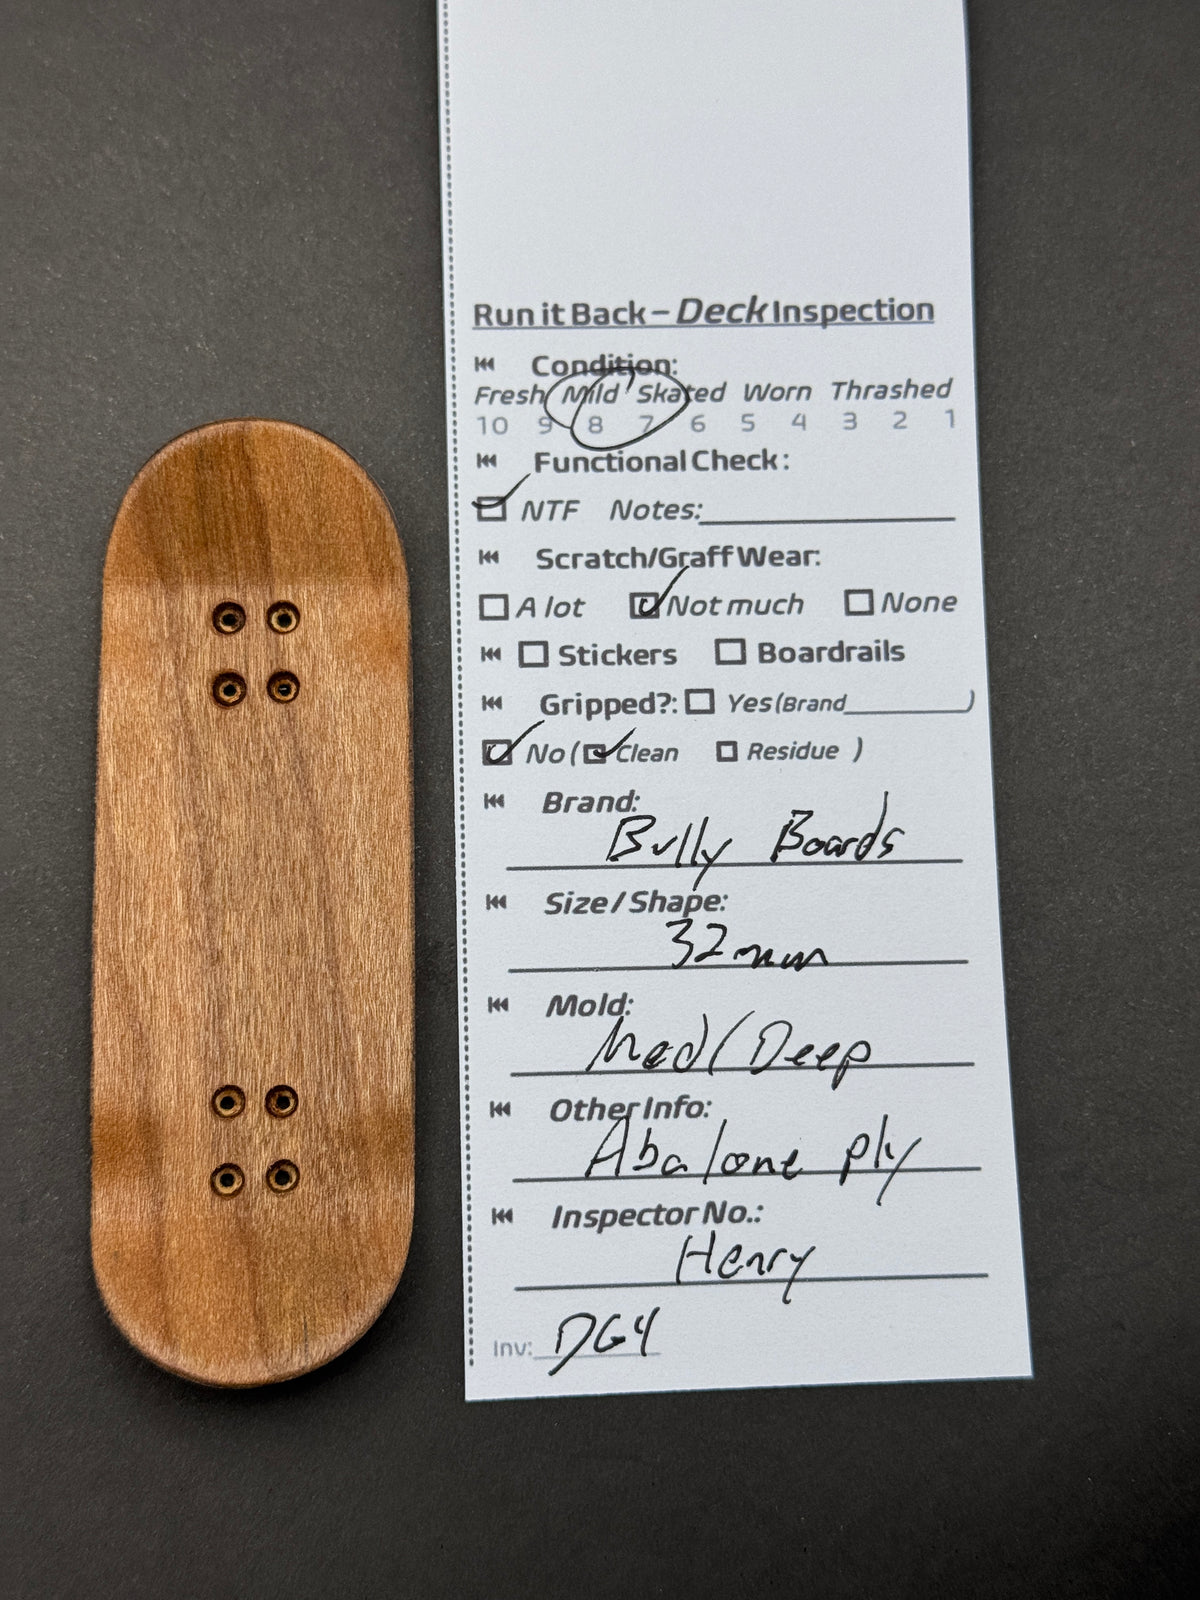 Run it Back – Deck Inspection
Condition:
Fresh Mild Skated Worn Thrashed
10 9 8 7 6 5 4 3 2 1
Functional Check:
NTF Notes:
Scratch/Graff Wear:
A lot Not much None
Stickers Boardrails
Gripped?: Yes (Brand )
No ( Clean Residue )
Brand:
Bully Boards
Size / Shape:
32mm
Mold:
Med/Deep
Other Info:
Abalone ply
Inspector No.:
Henry
Inv: DG4